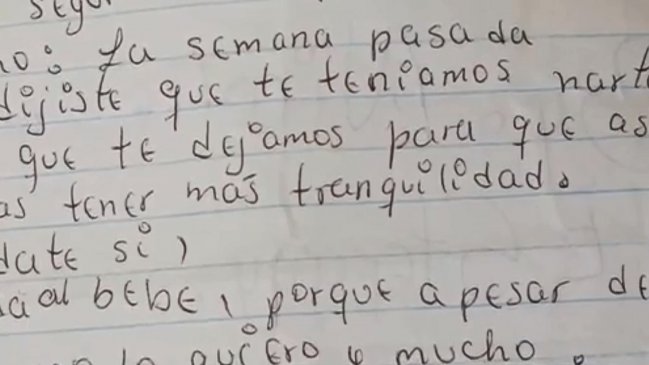 segu
no: La semana pasada
dijiste que te teniamos hart
que te dejamos para que as
as tener más tranquilidad.
date si,
a al bebe, porque a pesar de
lo quiero y mucho.